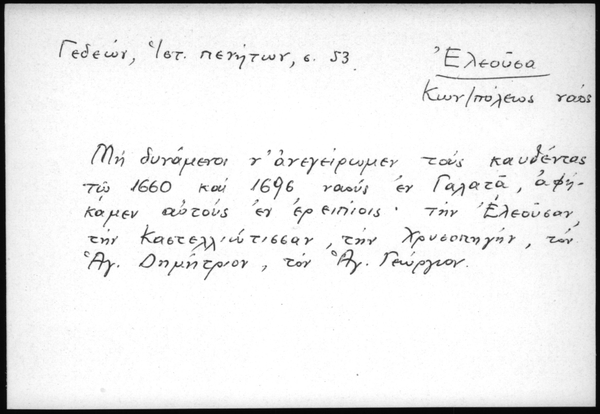 Γεδεών, Ἱστ. πενήτων, σ. 53.
Ἐλεοῦσα
Κων/πόλεως ναός
Μή δυνάμενοι ν' ἀνεγείρωμεν τούς καυθέντας
τῷ 1660 καί 1696 ναούς ἐν Γαλατᾷ, ἀφή-
καμεν αὐτούς ἐν ἐρειπίοις· τήν Ἐλεοῦσαν,
τήν Καστελλιώτισσαν, τήν Χρυσοπηγήν, τόν
Ἅγ. Δημήτριον, τόν Ἅγ. Γεώργιον.